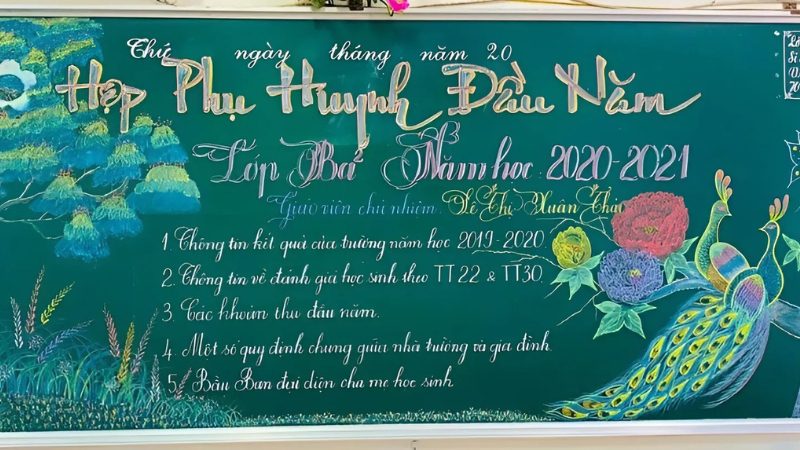 Thứ ngày tháng năm 20
Họp Phụ Huynh Đầu Năm
Lớp Ba² Năm học: 2020-2021
Giáo viên chủ nhiệm: Lê Thị Xuân
1. Thông tin kết quả của trường năm học 2019-2020.
2. Thông tin về đánh giá học sinh theo TT22 & TT30.
3. Các khoản thu đầu năm.
4. Một số quy định chung giữa nhà trường và gia đình.
5. Bầu Ban đại diện cha mẹ học sinh